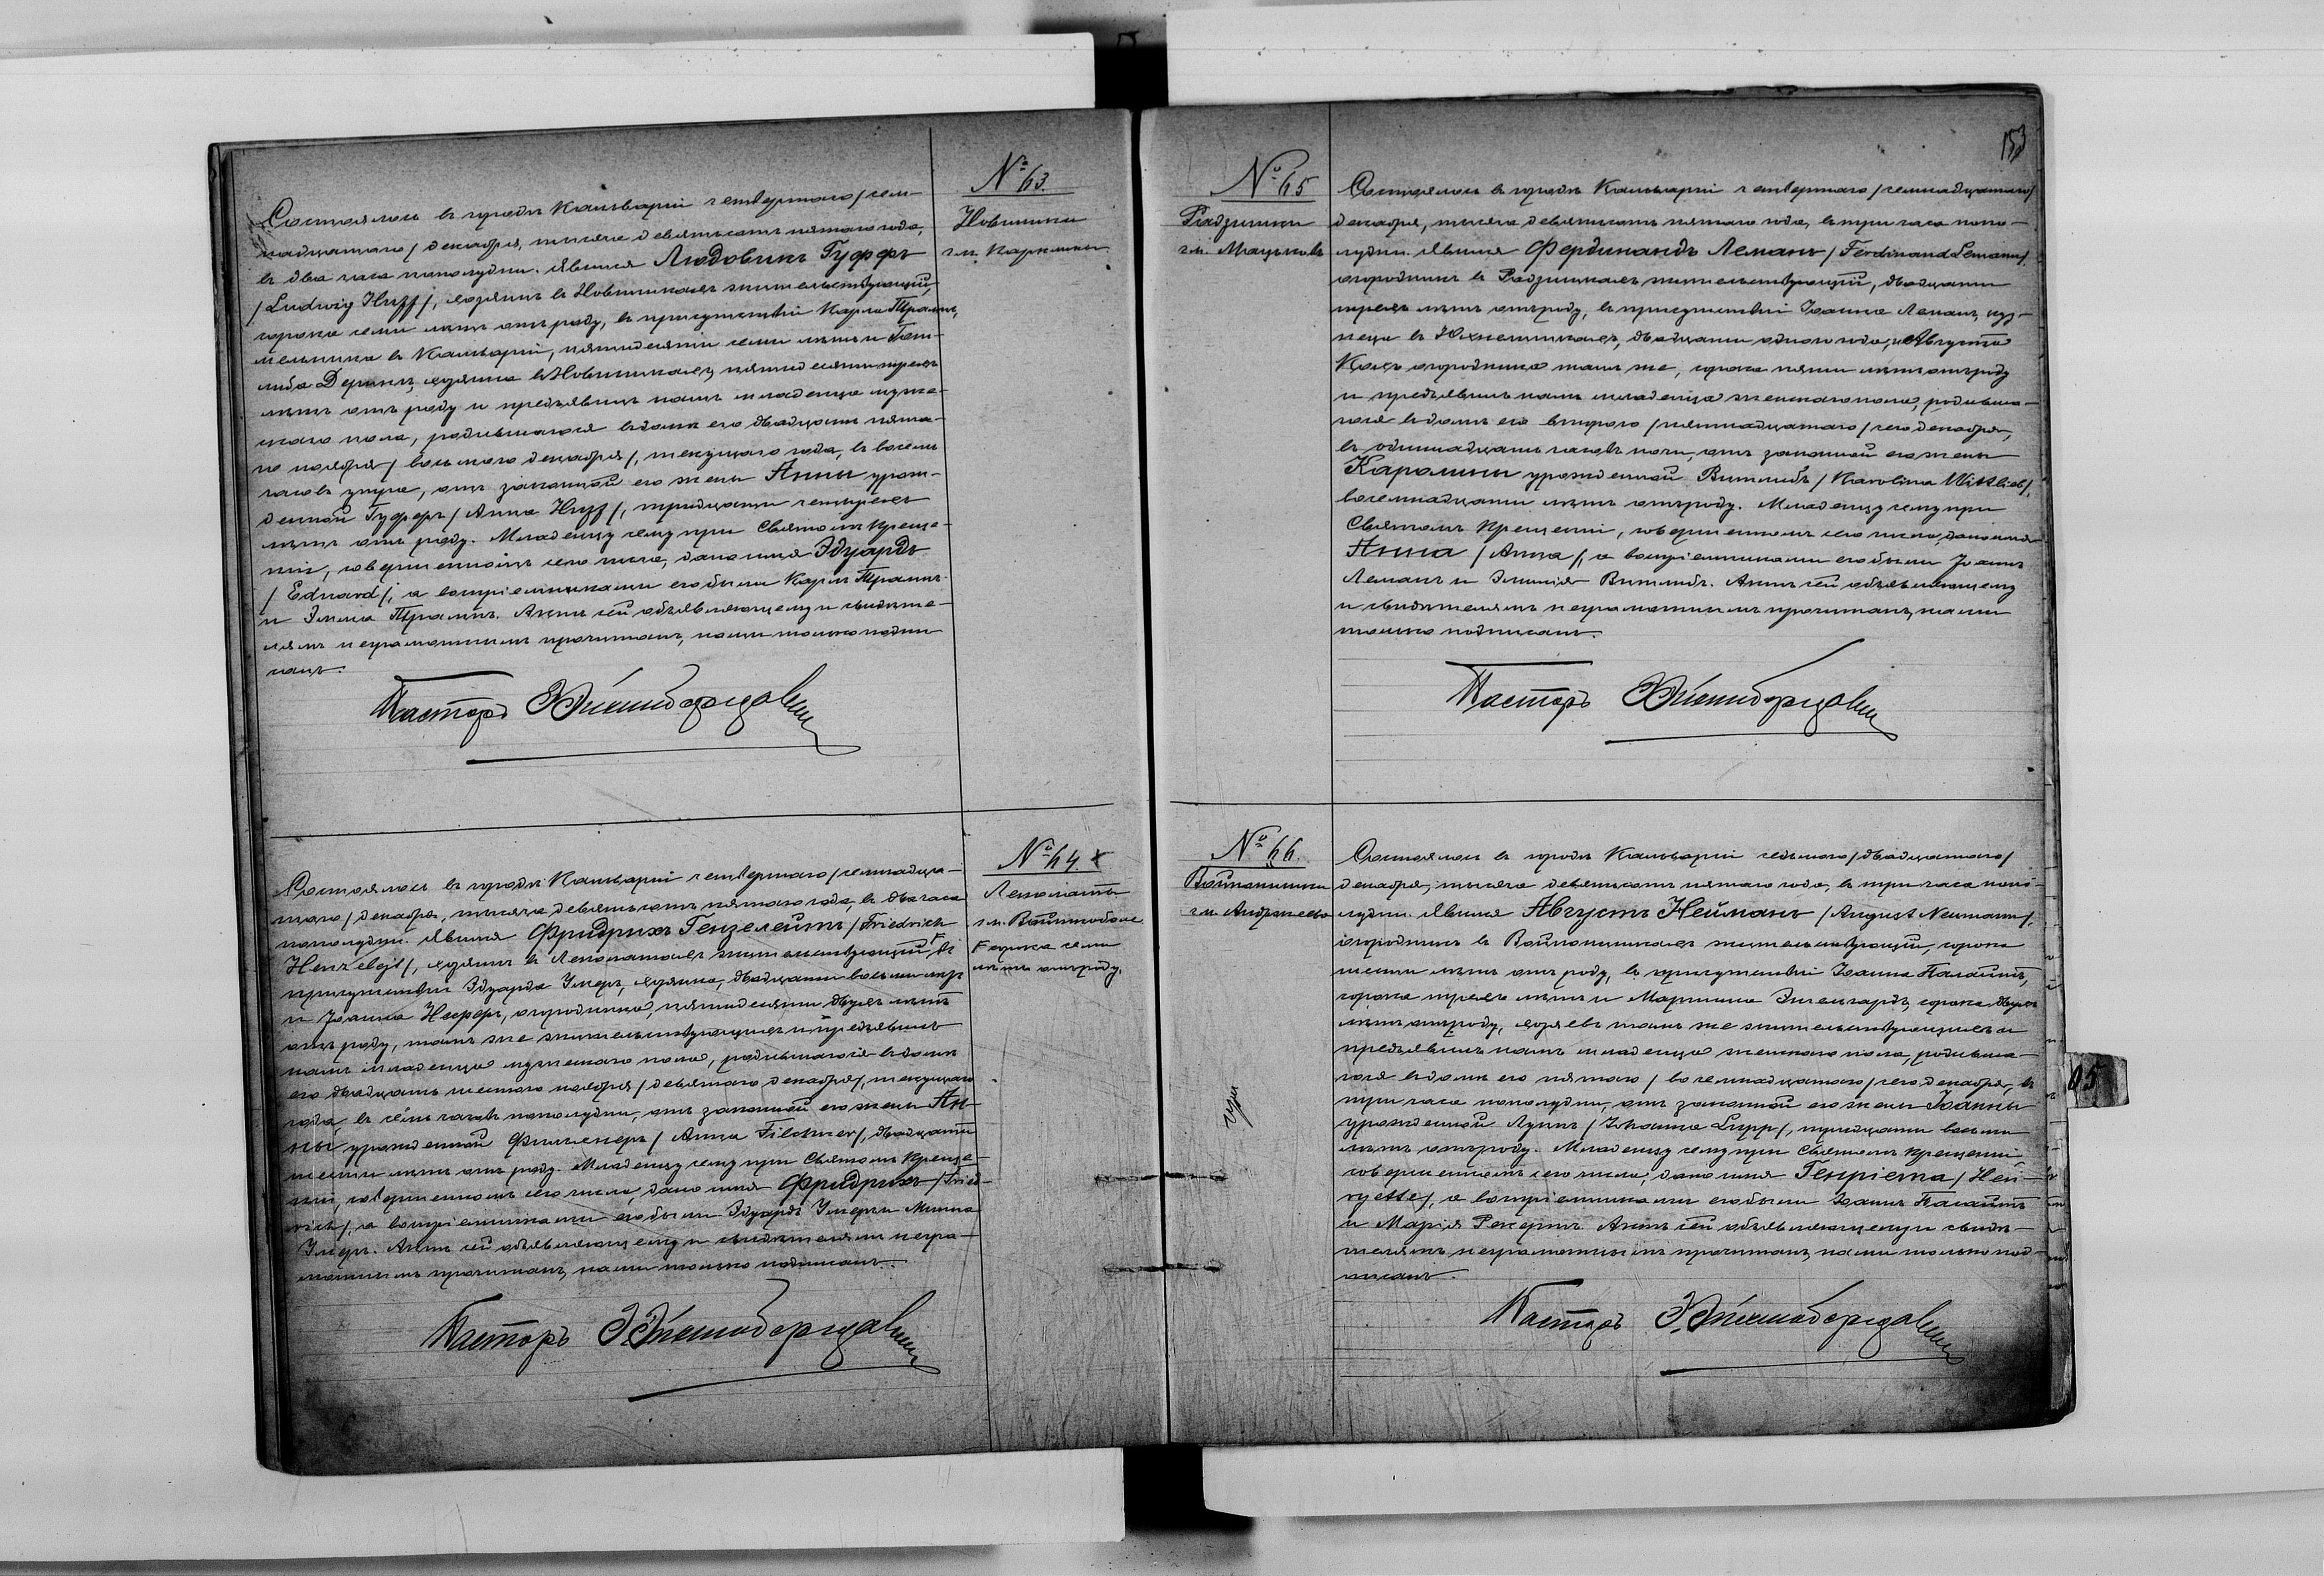 № 63.
Новинники
гм. Карклины
Состоялось въ городѣ Кальваріи четвертаго /сем-
надцатаго/ декабря, тысяча девятьсотъ пятаго года,
въ два часа пополудни. Явился Людовикъ Гуффъ
/Ludwig Huff/, хозяинъ въ Новинникахъ жительствующій,
сорока семи лѣтъ отъ роду, въ присутствіи Карла
мельника въ Кальваріи, пятидесяти семи лѣтъ и Гот-
либа хозяина въ Новинникахъ, пятидесяти трехъ
лѣтъ отъ роду и предъявилъ намъ младенца муже-
скаго пола, родившагося въ домѣ его двадцать пята-
го ноября /восьмого декабря/, текущаго года, въ восемь
часовъ утра, отъ законной его жены Анны урож-
денной Гуффъ /Anna Huff/, тридцати четырехъ
лѣтъ отъ роду. Младенцу сему при Святомъ Креще-
ніи, совершенномъ сего числа, дано имя Эдуардъ
/Eduard/, а воспріемниками его были Карлъ
и Эмма Актъ сей объявляющему и свидѣте-
лямъ неграмотнымъ прочитанъ, нами только подпи-
санъ.
Пасторъ
№ 64. x
гм.
F сорока семи
лѣтъ отъ роду.
Состоялось въ городѣ Кальваріи четвертаго /семнадца-
таго/ декабря, тысяча девятьсотъ пятаго года, въ два часа
пополудни. Явился Фридрихъ Гензелейтъ /Friedrich
Henzelejt/, хозяинъ въ жительствующій, F въ
присутствіи Эдуарда хозяина, двадцати восьми лѣтъ
и Іоанна огородника, пятидесяти двухъ лѣтъ
отъ роду, тамъ же жительствующихъ и предъявилъ
намъ младенца мужескаго пола, родившагося въ домѣ
его двадцать шестого ноября /девятаго декабря/, текущаго
года, въ семь часовъ пополудни, отъ законной его жены Ан-
ны урожденной /Anna Filchner/, двадцати
шести лѣтъ отъ роду. Младенцу сему при Святомъ Креще-
ніи, совершенномъ сего числа, дано имя Фридрихъ /Fried-
rich/, а воспріемниками его были Эдуардъ и Минна
Актъ сей объявляющему и свидѣтелямъ негра-
мотнымъ прочитанъ, нами только подписанъ.
Пасторъ
153
№ 65
Радзишки
гм.
Состоялось въ городѣ Кальваріи четвертаго /семнадцатаго/
декабря, тысяча девятьсотъ пятаго года, въ три часа попо-
лудни. Явился Фердинандъ Леманъ /Ferdinand Lemann/,
огородникъ въ Радзишкахъ жительствующій, двадцати
трехъ лѣтъ отъ роду, въ присутствіи Іоанна Леманъ, куз-
неца въ двадцати одного года, и Августа
огородника тамъ же, сорока пяти лѣтъ отъ роду
и предъявилъ намъ младенца женскаго пола, родивша-
гося въ домѣ его второго /пятнадцатаго/ сего декабря,
въ одиннадцать часовъ ночи, отъ законной его жены
Каролины урожденной Витлибъ /Karolina Wittlieb/,
восемнадцати лѣтъ отъ роду. Младенцу сему при
Святомъ Крещеніи, совершенномъ сего числа, дано имя
Анна /Anna/, а воспріемниками его были Іоаннъ
Леманъ и Эмилія Витлибъ. Актъ сей объявляющему
и свидѣтелямъ неграмотнымъ прочитанъ, нами
только подписанъ.
Пасторъ
№ 66.
гм. Андржеево
Состоялось въ городѣ Кальваріи седьмого /двадцатаго/
декабря, тысяча девятьсотъ пятаго года, въ три часа попо-
лудни. Явился Августъ Нейманъ /August Neumann/,
огородникъ въ жительствующій, сорока
шести лѣтъ отъ роду, въ присутствіи Іоанна
сорока трехъ лѣтъ и Мартина сорока двухъ
лѣтъ отъ роду, хозяевъ тамъ же жительствующихъ и
предъявилъ намъ младенца женскаго пола, родивша-
гося въ домѣ его пятаго /восемнадцатаго/ сего декабря, въ
три часа пополудни, отъ законной его жены Іоанны
урожденной Луппъ /Johanna Lupp/, тридцати восьми
лѣтъ отъ роду. Младенцу сему при Святомъ Крещеніи
совершенномъ сего числа, дано имя Генріета /Hen-
ryette/, а воспріемниками его были Іоаннъ
и Марія Рекертъ. Актъ сей объявляющему и свидѣ-
телямъ неграмотнымъ прочитанъ, нами только под-
писанъ.
Пасторъ
05